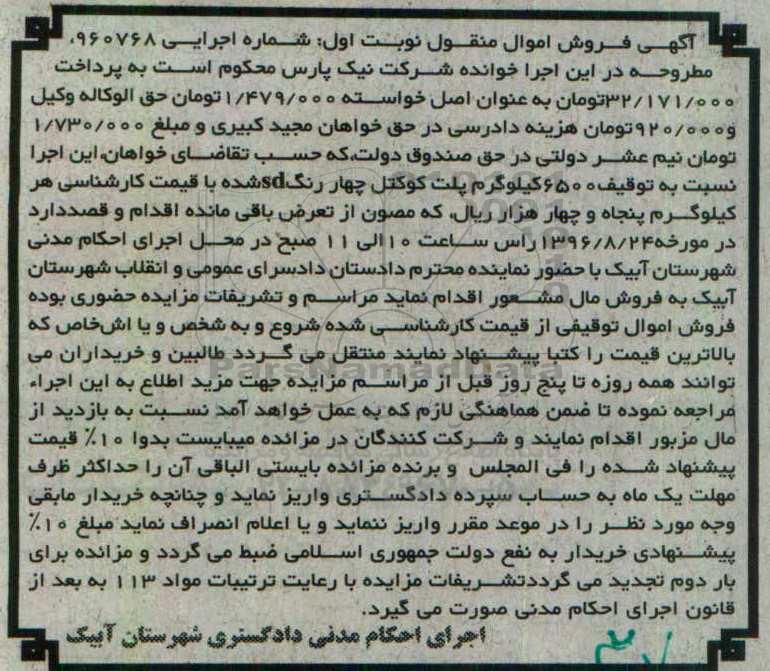 آگهی فروش اموال منقول نوبت اول: شماره اجرایی ۹۶۰۷۶۸،
مطروحه در این اجرا خوانده شرکت نیک پارس محکوم است به پرداخت
۳۲/۱۷۱/۰۰۰تومان به عنوان اصل خواسته ۱/۴۷۹/۰۰۰تومان حق الوکاله وکیل
و۹۲۰/۰۰۰تومان هزینه دادرسی در حق خواهان مجید کبیری و مبلغ ۱/۷۳۰/۰۰۰
تومان نیم عشر دولتی در حق صندوق دولت،که حسب تقاضای خواهان،این اجرا
نسبت به توقیف۶۵۰۰کیلوگرم پلت کوکتل چهار رنگsdشده با قیمت کارشناسی هر
کیلوگرم پنجاه و چهار هزار ریال، که مصون از تعرض باقی مانده اقدام و قصددارد
در مورخه۱۳۹۶/۸/۲۴راس ساعت ۱۰الی ۱۱ صبح در محل اجرای احکام مدنی
شهرستان آبیک با حضور نماینده محترم دادستان دادسرای عمومی و انقلاب شهرستان
آبیک به فروش مال مشعور اقدام نماید مراسم و تشریفات مزایده حضوری بوده
فروش اموال توقیفی از قیمت کارشناسی شده شروع و به شخص و یا اشخاص که
بالاترین قیمت را کتبا پیشنهاد نمایند منتقل می گردد طالبین و خریداران می
توانند همه روزه تا پنج روز قبل از مراسم مزایده جهت مزید اطلاع به این اجراء
مراجعه نموده تا ضمن هماهنگی لازم که به عمل خواهد آمد نسبت به بازدید از
مال مزبور اقدام نمایند و شرکت کنندگان در مزائده میبایست بدوا ۱۰٪ قیمت
پیشنهاد شده را فی المجلس و برنده مزائده بایستی الباقی آن را حداکثر ظرف
مهلت یک ماه به حساب سپرده دادگستری واریز نماید و چنانچه خریدار مابقی
وجه مورد نظر را در موعد مقرر واریز ننماید و یا اعلام انصراف نماید مبلغ ۱۰٪
پیشنهادی خریدار به نفع دولت جمهوری اسلامی ضبط می گردد و مزائده برای
بار دوم تجدید می گرددتشریفات مزایده با رعایت ترتیبات مواد ۱۱۳ به بعد از
قانون اجرای احکام مدنی صورت می گیرد.
اجرای احکام مدنی دادگستری شهرستان آبیک
ParsNamadData